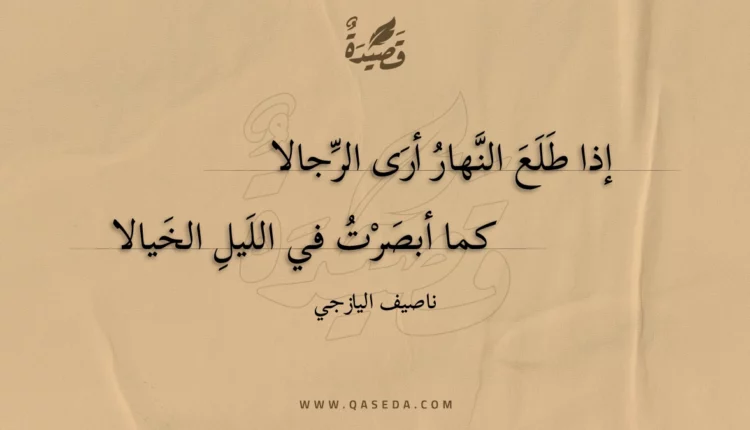 قَصِيْدَةٌ
إذا طَلَعَ النَّهارُ أرَى الرِّجالا
كما أبصَرْتُ في اللَيلِ الخَيالا
ناصيف اليازجي
WWW.QASEDA.COM